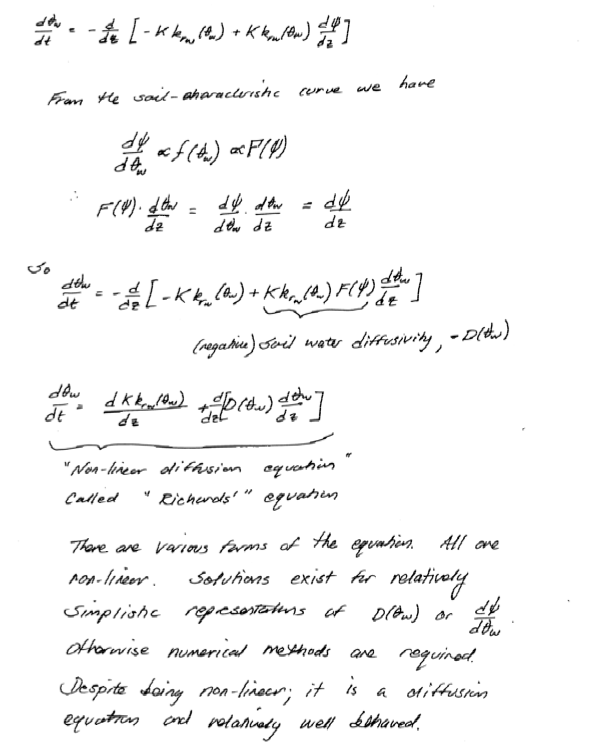 dθw/dt = - d/dz [ - K krw (θw) + K krw (θw) dψ/dz ]
From the soil-characteristic curve we have
dψ/dθw ∝ f(θw) ∝ F(ψ)
∴ F(ψ) · dθw/dz = dψ/dθw · dθw/dz = dψ/dz
So
dθw/dt = - d/dz [ - K krw (θw) + K krw (θw) F(ψ) dθw/dz ]
(negative) soil water diffusivity, - D(θw)
dθw/dt = d K krw (θw)/dz + d/dz [D(θw) dθw/dz ]
"Non-linear diffusion equation"
Called "Richards'" equation
There are various forms of the equation. All are
non-linear. Solutions exist for relatively
simplistic representations of D(θw) or dψ/dθw.
Otherwise numerical methods are required.
Despite being non-linear; it is a diffusion
equation and relatively well behaved.